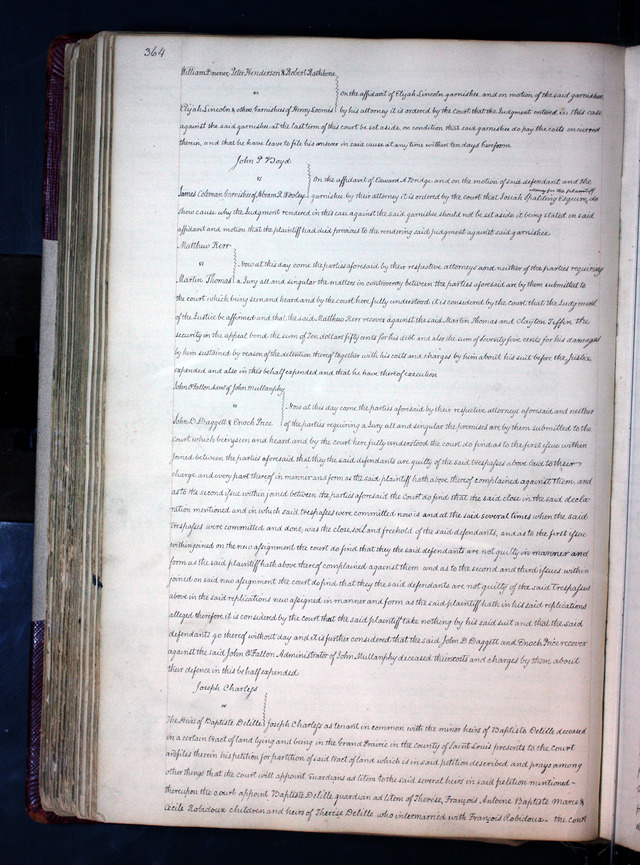 364
William Downer, Peter Henderson & Robert Rathbone
vs
On the affidavit of Elijah Lincoln garnishee and on motion of the said garnishee
Elijah Lincoln & others Garnishees of Henry Loomis by his attorney it is ordered by the Court that the Judgment entered in this case
against the said garnishee at the last term of this court be set aside, on condition that said garnishee do pay the costs incurred
therein, and that he have leave to file his answer in said cause at any time within ten days herefrom
John P Boyd
vs
On the affidavit of Edward A Dodge and on the motion of said defendant and the
attorney for the plaintiff
James Coleman Garnishee of Abram R Wooley garnishee by their attorney it is ordered by the court that Josiah Spalding Esquire, do
show cause why the Judgment rendered in this case against the said garnishee should not be set aside it being stated in said
affidavit and motion that the plaintiff had died previous to the rendering said Judgment against said garnishee
Matthew Kerr
vs
Now at this day come the parties aforesaid by their respective attorneys and neither of the parties requiring
Martin Thomas a Jury all and singular the matters in controversy between the parties aforesaid are by them submitted to
the court which being seen and heard and by the court here fully understood it is considered by the court that the Judgment
of the Justice be affirmed and that the said Matthew Kerr recover against the said Martin Thomas and Clayton Tiffin the
security in the appeal bond the sum of Ten dollars fifty cents for his debt and also the sum of seventy five cents for his damages
by him sustained by reason of the detention thereof together with his costs and charges by him about his suit before the Justice
expended and also in this behalf expended and that he have thereof execution
John O'Fallon Admr of John Mullanphy
vs
Now at this day come the parties aforesaid by their respective attorneys aforesaid and neither
John D. Daggett & Enoch Price of the parties requiring a Jury all and singular the premises are by them submitted to the
court which being seen and heard and by the court here fully understood the court do find as to the first issue within
joined between the parties aforesaid that they the said defendants are guilty of the said trespasses above laid to their
charge and every part thereof in manner and form as the said plaintiff hath above thereof complained against them and
as to the second issue within joined between the parties aforesaid the Court do find that the said close in the said decla
ration mentioned and in which said trespasses were committed now is and at the said several times when the said
trespasses were committed and done was the close, soil and freehold of the said defendants, and as to the first issue
within joined on the new assignment the court do find that they the said defendants are not guilty in manner and
form as the said plaintiff hath above thereof complained against them and as to the second and third issues within
joined on said new assignment the court do find that they the said defendants are not guilty of the said Trespasses
above in the said replications new assigned in manner and form as the said plaintiff hath in his said replications
alleged therefore it is considered by the court that the said plaintiff take nothing by his said suit and that the said
defendants go thereof without day and it is further considered that the said John D Daggett and Enoch Price recover
against the said John O'Fallon Administrator of John Mullanphy deceased their costs and charges by them about
their defence in this behalf expended
Joseph Charless
vs
The Heirs of Baptiste Delille Joseph Charless as tenant in common with the minor heirs of Baptiste Delille deceased
in a certain tract of land lying and being in the Grand Prairie in the county of Saint Louis presents to the court
and files therein his petition for partition of said tract of land which is in said petition described and prays among
other things that the court will appoint Guardians ad litem to the said several heirs in said petition mentioned -
thereupon the court appoint Baptiste Delille guardian ad litem of Therese, François Antoine Baptiste Marie &
Cecile Robidoux children and heirs of Therese Delille who intermarried with François Robidoux - the court